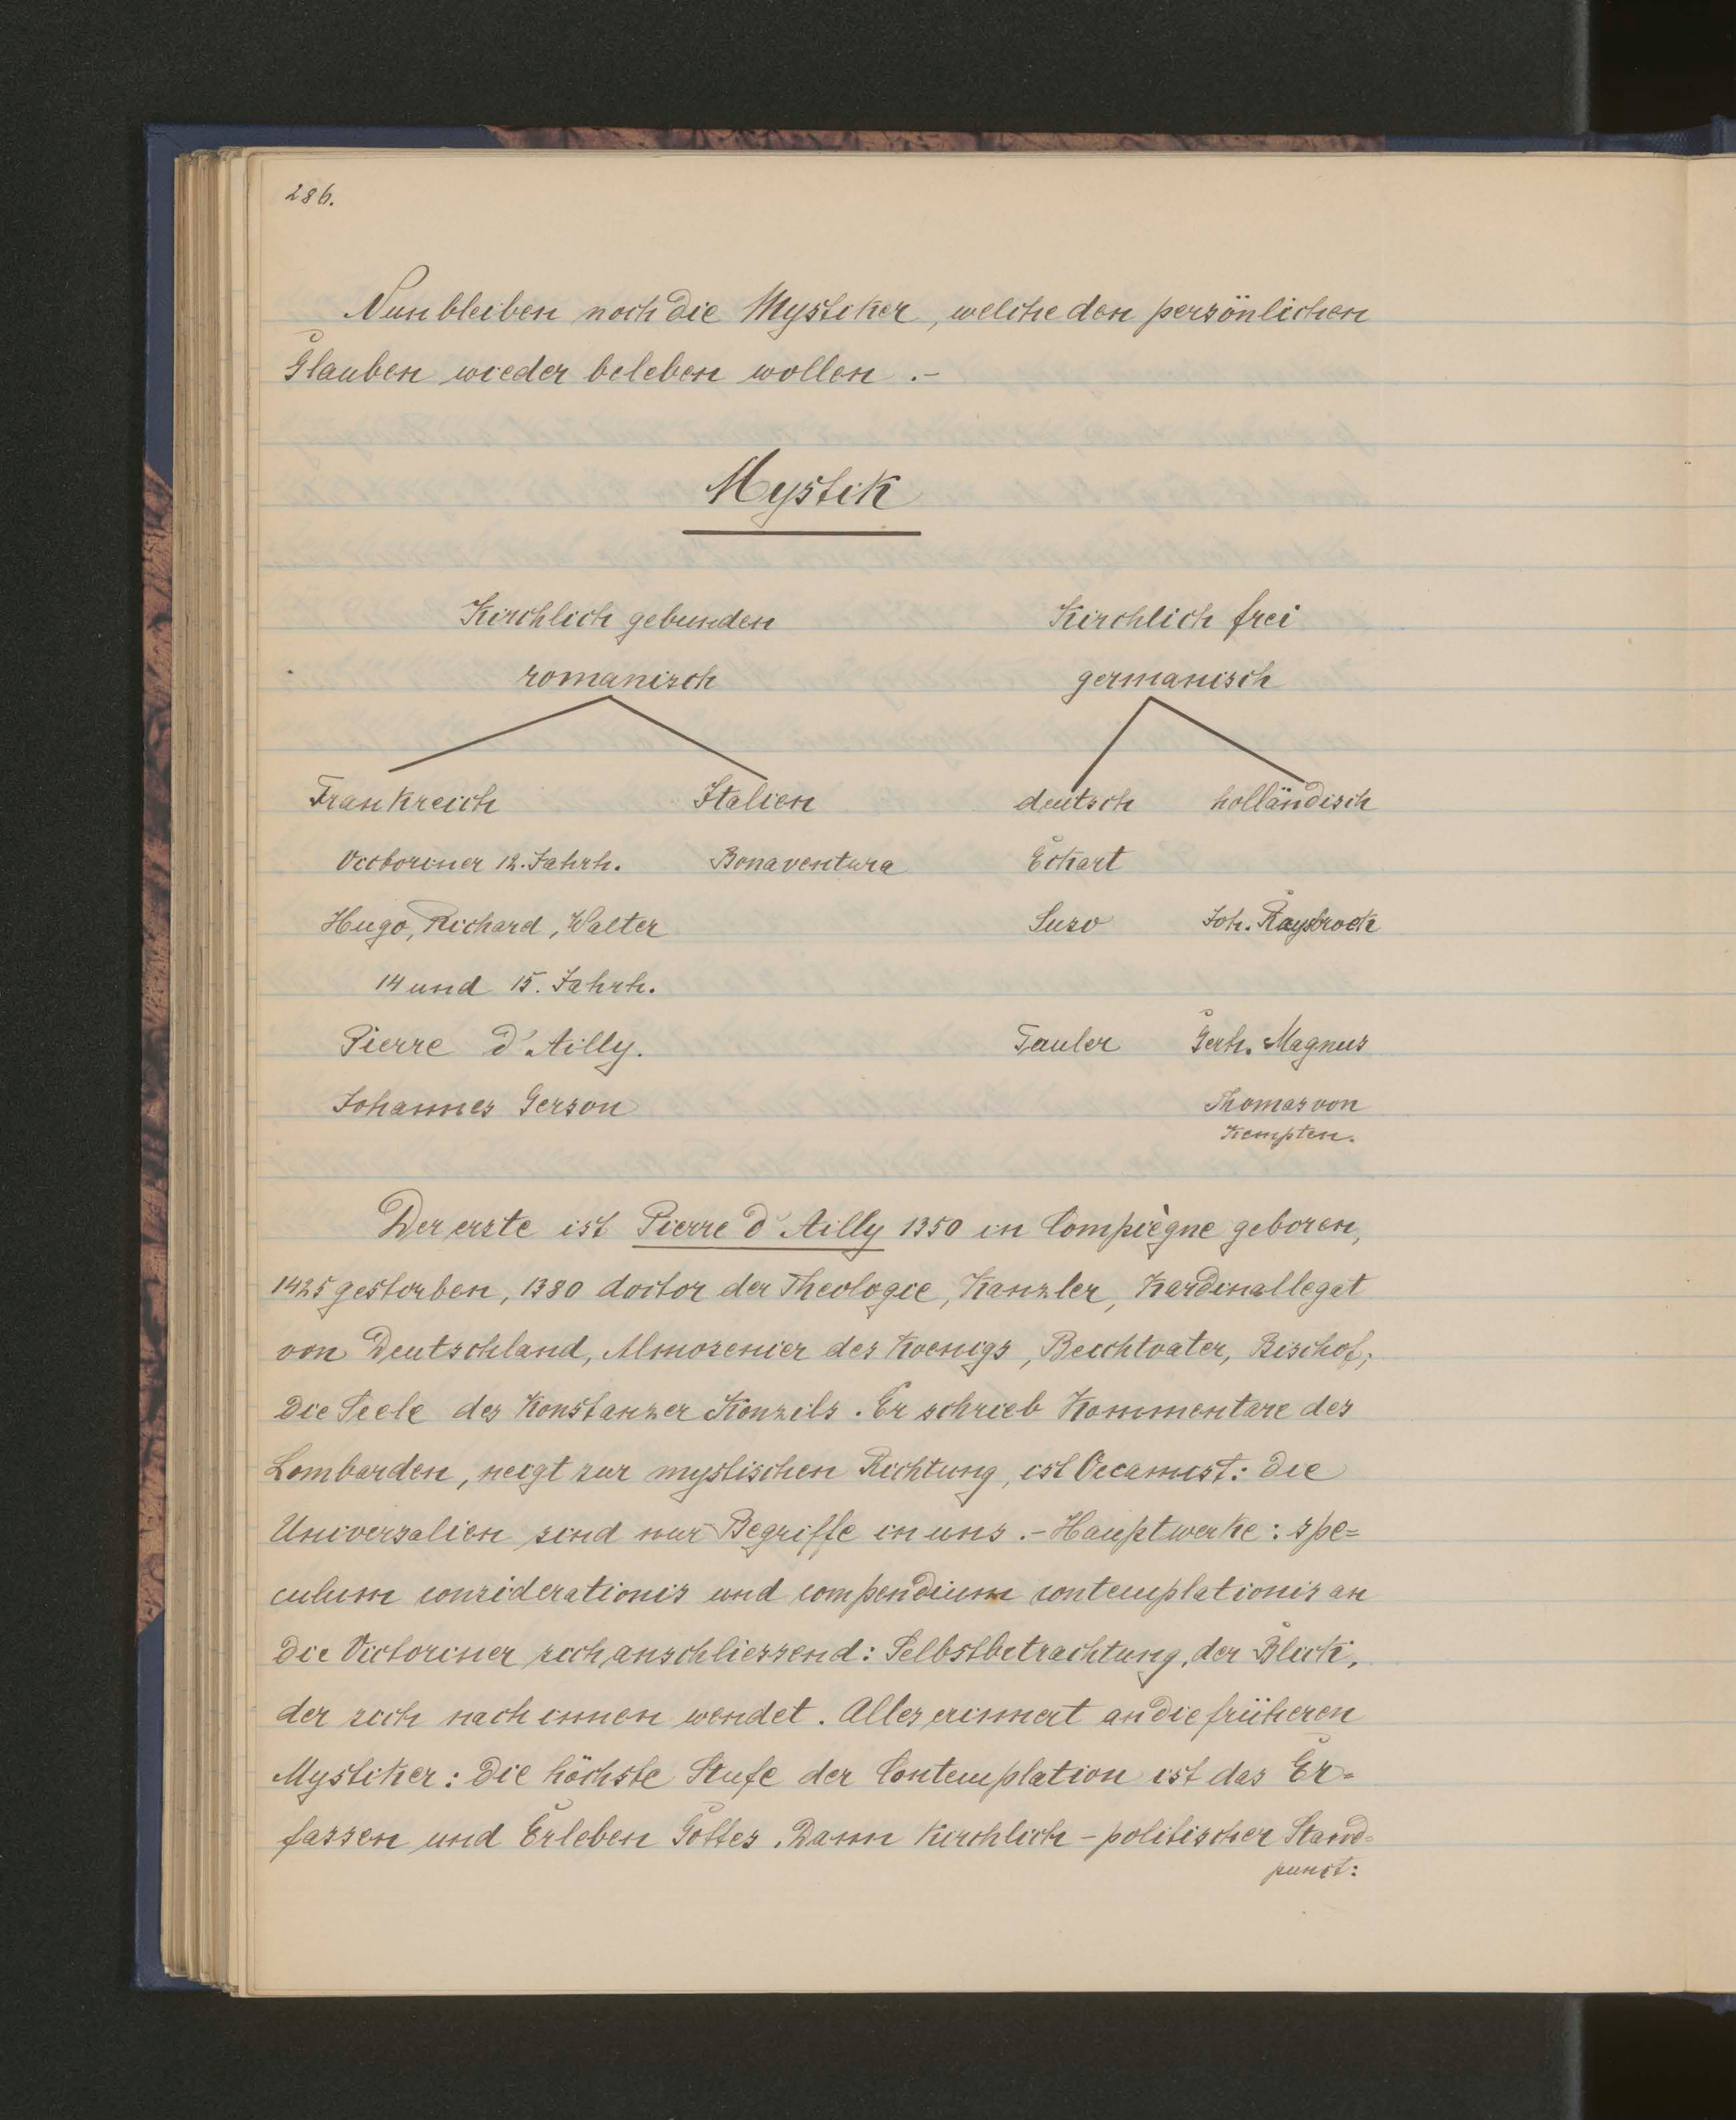 286.
Nun bleiben noch die Mystiker, welche den persönlichen
Glauben wieder beleben wollen .-
Mystik
Kirchlich gebunden Kirchlich frei
romanisch germanisch
Frankreich Italien deutsch holländisch
Victoriner 12. Jahrh. Bonaventura Eckart
Hugo, Richard, Walter Suso Joh. Raysbrock
14 und 15. Jahrh.
Pierre d'Ailly. Tauler Gerh. Magnus
Johannes Gerson Thomas von
Kempten.
Der erste ist Pierre d'Ailly 1350 in Compiègne geboren,
1425 gestorben, 1380 doctor der Theologie, Kanzler, Kardinallegat
von Deutschland, Almosenier des Koenigs, Beichtvater, Bischof;
die Seele des Konstanzer Konzils. Er schrieb Kommentare des
Lombarden, neigt zur mystischen Richtung, ist Occamist: die
Universalien sind nur Begriffe in uns .- Hauptwerke: spe=
culum considerationis und compendium contemplationis an
die Victoriner sich anschliessend: Selbstbetrachtung, der Blick,
der sich nach innen wendet. Alles erinnert an die früheren
Mystiker: die höchste Stufe der Contemplation ist das Er=
fassen und Erleben Gottes. Dann kirchlich-politischer Stand=
punct: